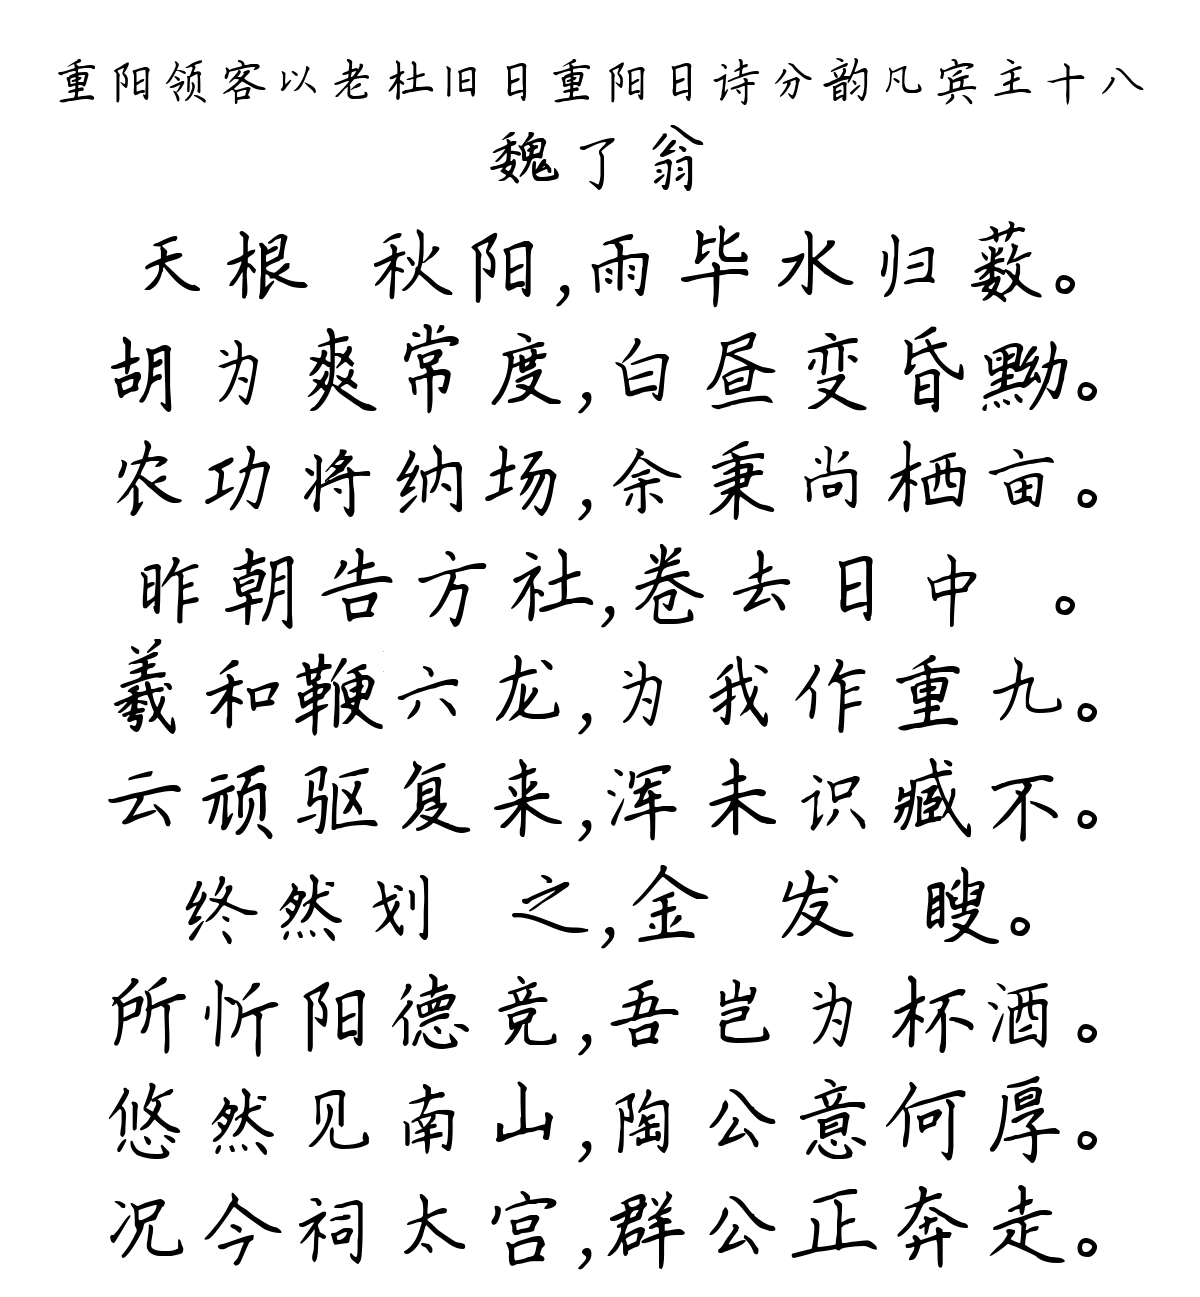 重阳领客以老杜旧日重阳日诗分韵凡宾主十八
魏了翁
天根 秋阳,雨毕水归薮。
胡为爽常度,白昼变昏黝。
农功将纳场,余秉尚栖亩。
昨朝告方社,卷去日中 。
羲和鞭六龙,为我作重九。
云顽驱复来,浑未识臧不。
终然划 之,金 发 瞍。
所忻阳德竞,吾岂为杯酒。
悠然见南山,陶公意何厚。
况今祠太宫,群公正奔走。